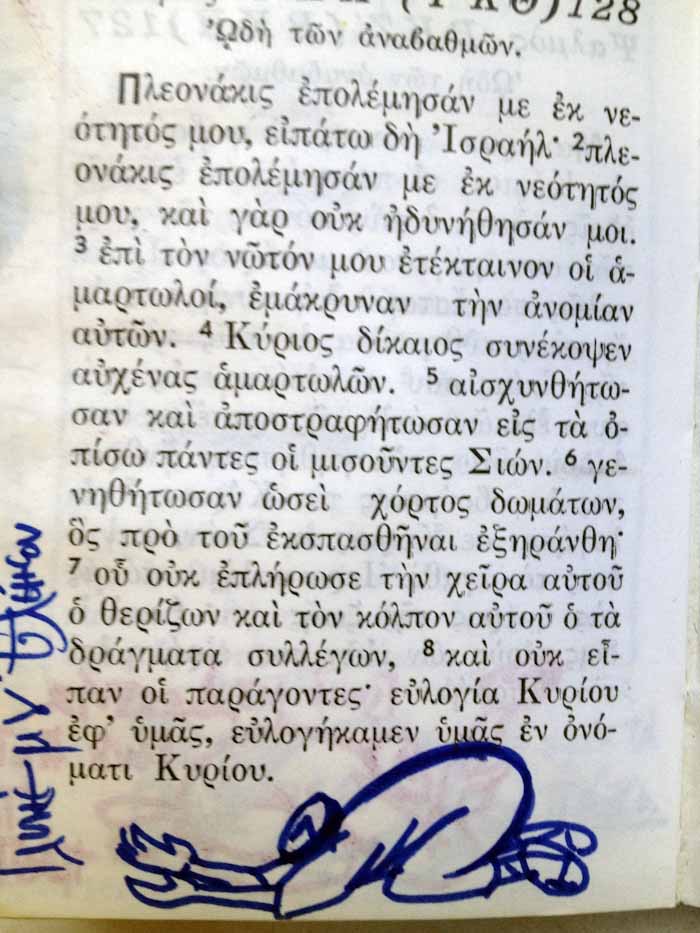 128
ᾨδὴ τῶν ἀναβαθμῶν.
Πλεονάκις ἐπολέμησάν με ἐκ νε-
ότητός μου, εἰπάτω δὴ Ἰσραήλ· ²πλε-
ονάκις ἐπολέμησάν με ἐκ νεότητός
μου, καὶ γὰρ οὐκ ἠδυνήθησάν μοι.
³ ἐπὶ τὸν νῶτόν μου ἐτέκταινον οἱ ἁ-
μαρτωλοί, ἐμάκρυναν τὴν ἀνομίαν
αὐτῶν. ⁴ Κύριος δίκαιος συνέκοψεν
αὐχένας ἁμαρτωλῶν. ⁵ αἰσχυνθήτω-
σαν καὶ ἀποστραφήτωσαν εἰς τὰ ὀ-
πίσω πάντες οἱ μισοῦντες Σιών. ⁶ γε-
νηθήτωσαν ὡσεὶ χόρτος δωμάτων,
ὃς πρὸ τοῦ ἐκσπασθῆναι ἐξηράνθη·
⁷ οὗ οὐκ ἐπλήρωσε τὴν χεῖρα αὐτοῦ
ὁ θερίζων καὶ τὸν κόλπον αὐτοῦ ὁ τὰ
δράγματα συλλέγων, ⁸ καὶ οὐκ εἶ-
παν οἱ παράγοντες· εὐλογία Κυρίου
ἐφ' ὑμᾶς, εὐλογήκαμεν ὑμᾶς ἐν ὀνό-
ματι Κυρίου.